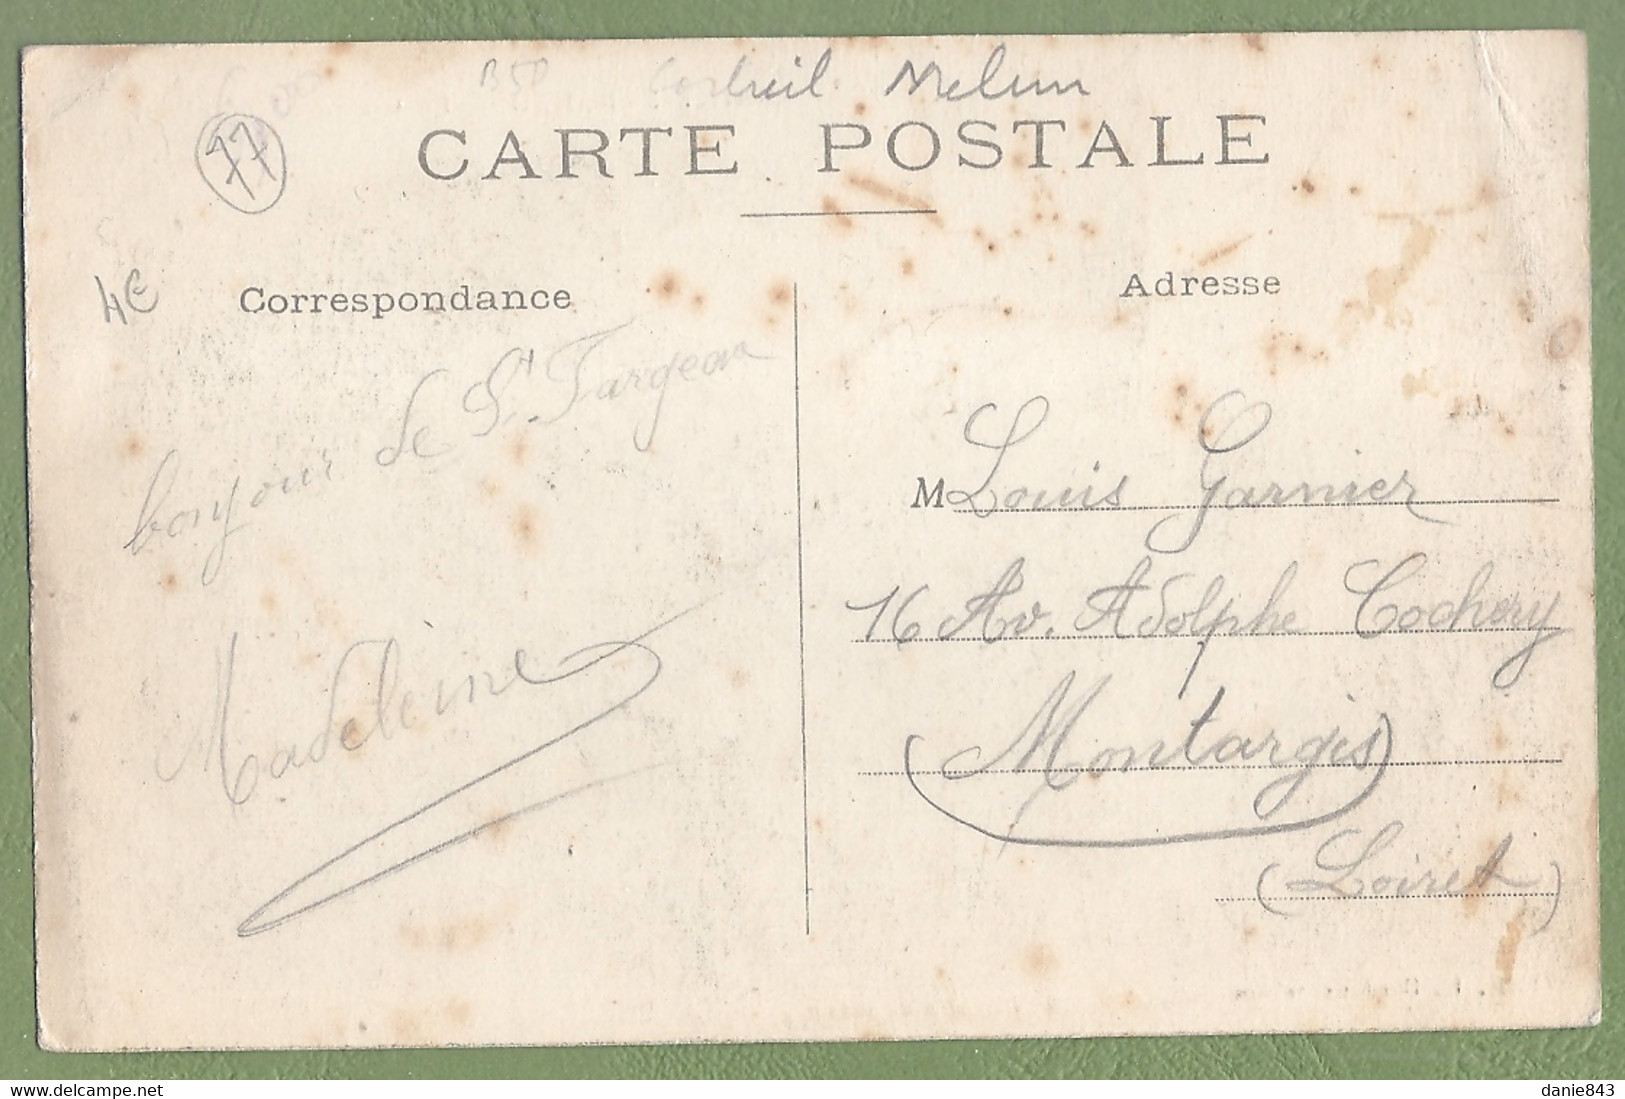 B50 Corbeil Melun
77
CARTE POSTALE
4€
Correspondance
bonjour de St. Fargeau
Madeleine
Adresse
M Louis Garnier
16 Av. Adolphe Cochery
(Montargis)
(Loiret)
danie843